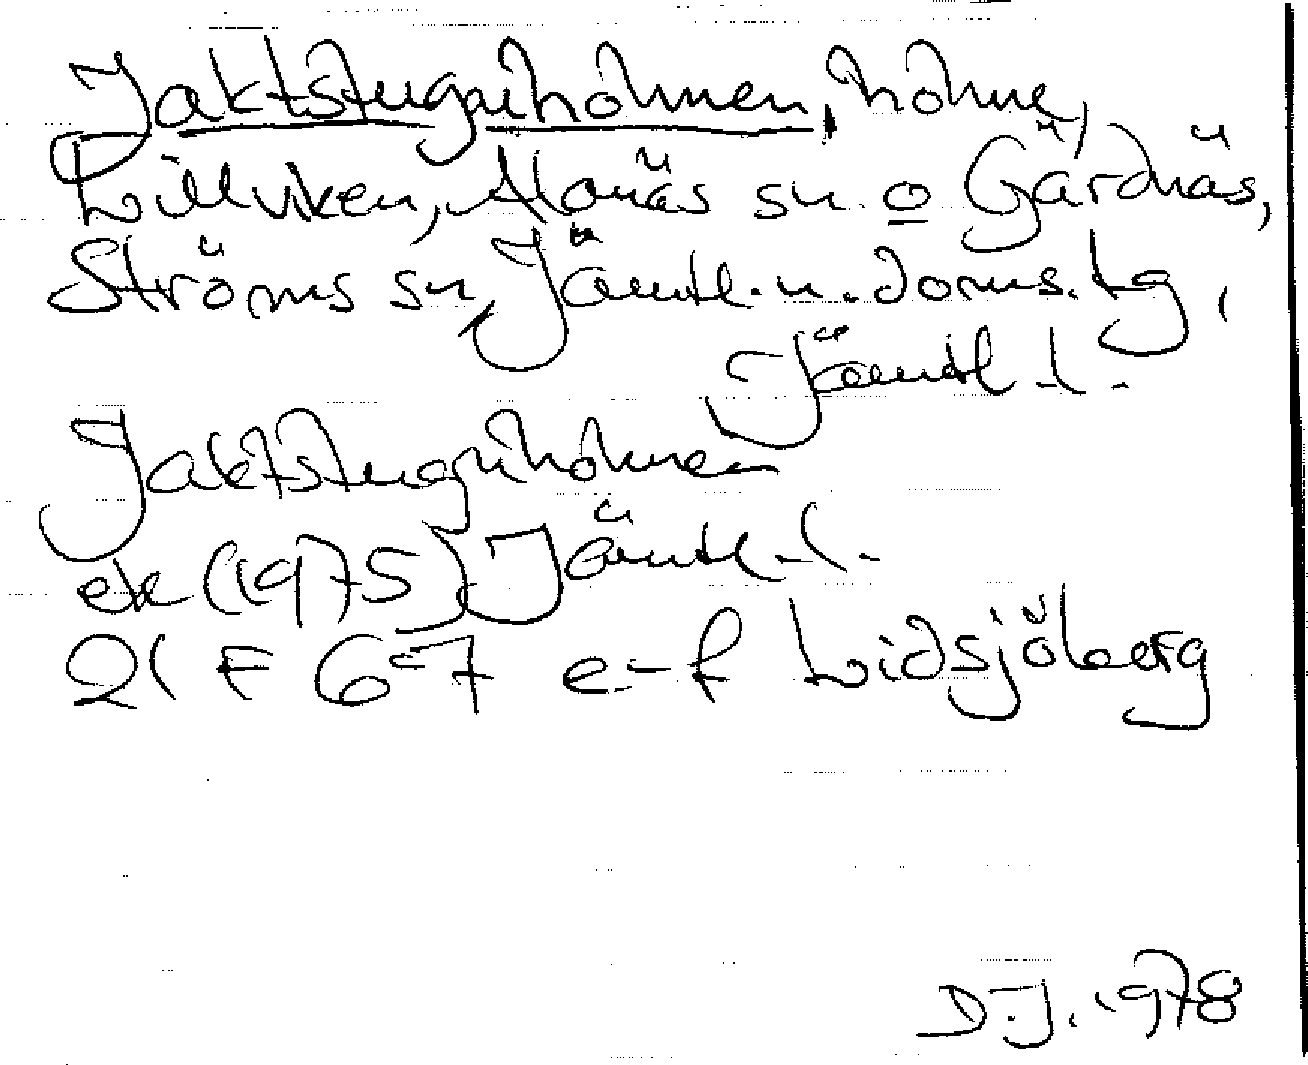 Jaktstuguholmen, holme,
Lillviken, Alanäs sn o Gärdnäs,
Ströms sn, Jämtl. n. doms. tg,
Jämtl. l.
Jaktstuguholmen
ek (1975) Jämtl. l.
21 F 6-7 e-f Lidsjöberg
D.J. 1978